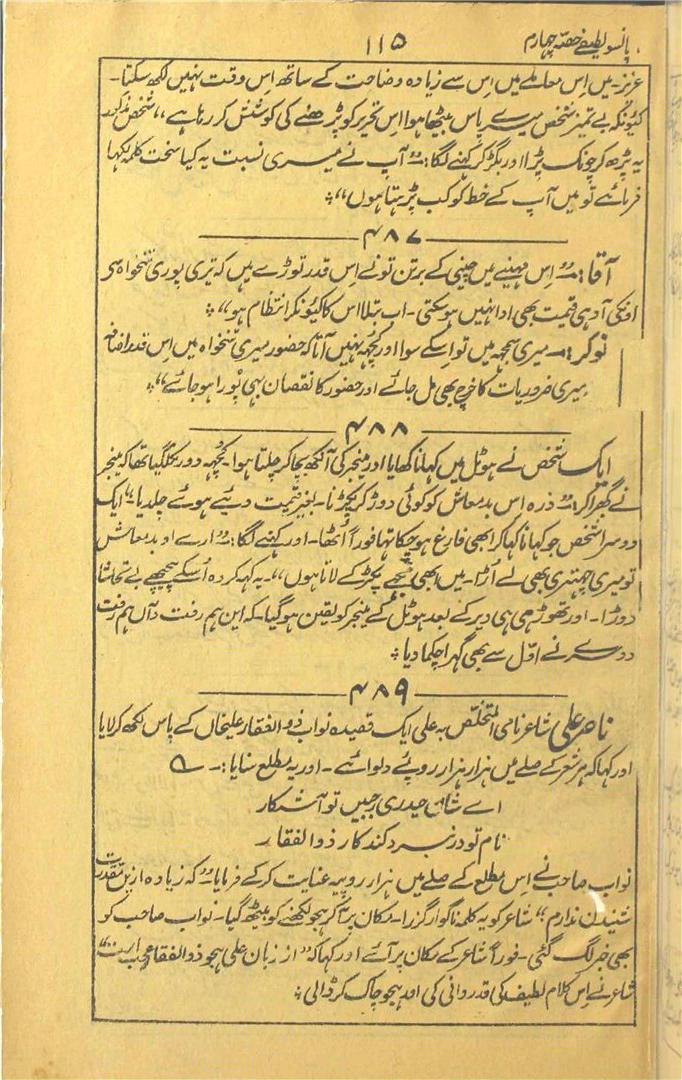 پانسو لطیفے حصّہ چہارم
۱۱۵
عزیز۔ میں اِس معاملے میں اِس سے زیادہ وضاحت کے ساتھ اِس وقت نہیں لکھ سکتا۔
کیونکہ ایک بے تمیز شخص میرے پاس بیٹھا ہوا اس تحریر کو پڑھنے کی کوشش کر رہا ہے،، شخص مذکور
یہ پڑھ کر چونک پڑا اور بگڑ کر کہنے لگا:۔ ”آپ نے میری نسبت یہ کیا سخت کلمہ لکھا
فرمائیے تو میں آپ کے خط کو کب پڑہتا ہوں“
۴۸۷
آقا:۔ ”اِس مہینے میں چینی کے برتن تو نے اِس قدر توڑے ہیں کہ تیری پوری تنخواہ سے
اونکی آدہی قیمت بھی ادا نہیں ہو سکتی۔ اب بتلا اس کا کیونکر انتظام ہو“
نوکر:۔ میری سمجہہ میں تو اسکے سوا اور کُچہہ نہیں آتا کہ حضور میری تنخواہ میں اِس قدر اضافہ
میری ضروریات کا خرچ بھی مل جائے اور حضور کا نقصان بہی پُورا ہو جائے“
۴۸۸
ایک شخص نے ہوٹل میں کہانا کھایا اور منیجر کی آنکھ بچا کر چلتا ہوا۔ کچُہہ دور نکل گیا تھا کہ منیجر
نے گھبرا کر: ”ذرہ اس بدمعاش کو کوئی دوڑ کر پکڑنا۔ بغیر قیمت دیئے ہوئے چلدیا۔“ ایک
دوسرا شخص جو کہانا کہا کر ابھی فارغ ہو چکا تہا فوراً اُٹھا۔ اور کہنے لگا:۔ ”ارے او بدمعاش
تو میری چہتری بھی لے اُڑا۔ میں ابھی تجھے پکڑ کے لاتا ہوں“۔ یہ کہہ کر وہ اُسکے پیچھے بے تحاشا
دوڑا۔ اور تھوڑی ہی دیر کے بعد ہوٹل کے منیجر کو یقین ہو گیا۔ کہ این ہم رفت و آں ہم رفت
دوسرے نے اوّل سے بھی گہرا چکما دیا
۴۸۹
ناصر علی شاعر نامی المتخلّص بہ علی ایک قصیدہ نواب ذوالفقار علیخاں کے پاس لکھ کر لایا
اور کہا کہ ہر شعر کے صلے میں ہزار ہزار روپئے دلوائے۔ اور یہ مطلع سنایا:۔
اے شانِ حیدری ز جبیں تو آشکار
نام تو در نبرد کند کار ذوالفقار
نواب صاحب نے اِس مطلع کے صلے میں ہزار روپیہ عنایت کر کے فرمایا ”کہ زیادہ ازیں مقدرت
شنیدن ندارم“ شاعر کو یہ کلمہ ناگوار گزرا۔ مکان پر آکر ہجو لکھنے کو بیٹھ گیا۔ نواب صاحب کو
بھی خبر لگ گئی۔ فوراً شاعر کے مکان پر آئے اور کہا کہ ”از زبان علی ہجو ذوالفقار عجب است“
شاعر نے اِس کلام لطیف کی قدردانی کی اور ہجو چاک کر ڈالی